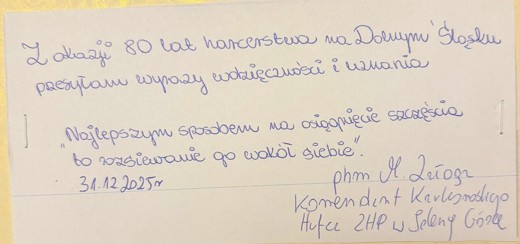 Z okazji 80 lat harcerstwa na Dolnym Śląsku
przesyłam wyrazy wdzięczności i uznania
"Najlepszym sposobem na osiągnięcie szczęścia
to rozsiewanie go wokół siebie".
31.12.2025r
phm M. Załoga
Komendant Karkonoskiego
Hufca ZHP w Jeleniej Górze